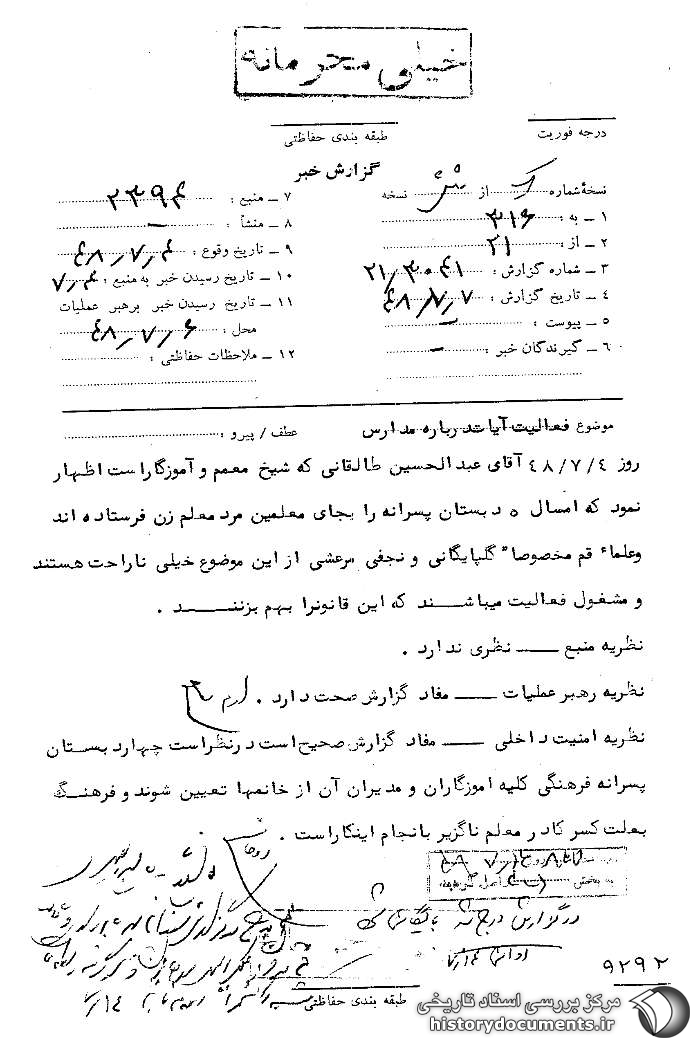 خیلی محرمانه
درجه فوریت
طبقه بندی حفاظتی
گزارش خبر
نسخهٔ شماره از شش نسخه
۱ – به : ۳۱۶
۲ – از : ۲۱
۳ – شماره گزارش : ۲۱/۳۰۴۱
۴ – تاریخ گزارش : ۴۸/۷/۷
۵ – پیوست : –
۶ – گیرندگان خبر : –
۷ – منبع : ۲۳۹۴
۸ – منشأ : –
۹ – تاریخ وقوع : ۴۸/۷/۴
۱۰ – تاریخ رسیدن خبر به منبع : ۷/۴
۱۱ – تاریخ رسیدن خبر برهبر عملیات
محل : ۴۸/۷/۶
۱۲ – ملاحظات حفاظتی :
موضوع فعالیت آیات درباره مدارس
عطف / پیرو :
روز ۴۸/۷/۴ آقای عبدالحسین طالقانی که شیخ معمم و آموزگار است اظهار
نمود که امسال ۵ دبستان پسرانه را بجای معلمین مرد معلم زن فرستاده اند
وعلماء قم مخصوصا" گلپایگانی و نجفی مرعشی از این موضوع خیلی ناراحت هستند
و مشغول فعالیت میباشند که این قانونرا بهم بزنند .
نظریه منبع — نظری ندارد .
نظریه رهبر عملیات — مفاد گزارش صحت دارد .
نظریه امنیت داخلی — مفاد گزارش صحیح است در نظر است چهار دبستان
پسرانه فرهنگی کلیه اموزگاران و مدیران آن از خانمها تعیین شوند و فرهنگ
بعلت کسر کادر معلم ناگزیر بانجام اینکار است .
در گزارش درج شد بایگانی
۹۲۹۲
طبقه بندی حفاظتی
مرکز بررسی اسناد تاریخی
historydocuments.ir